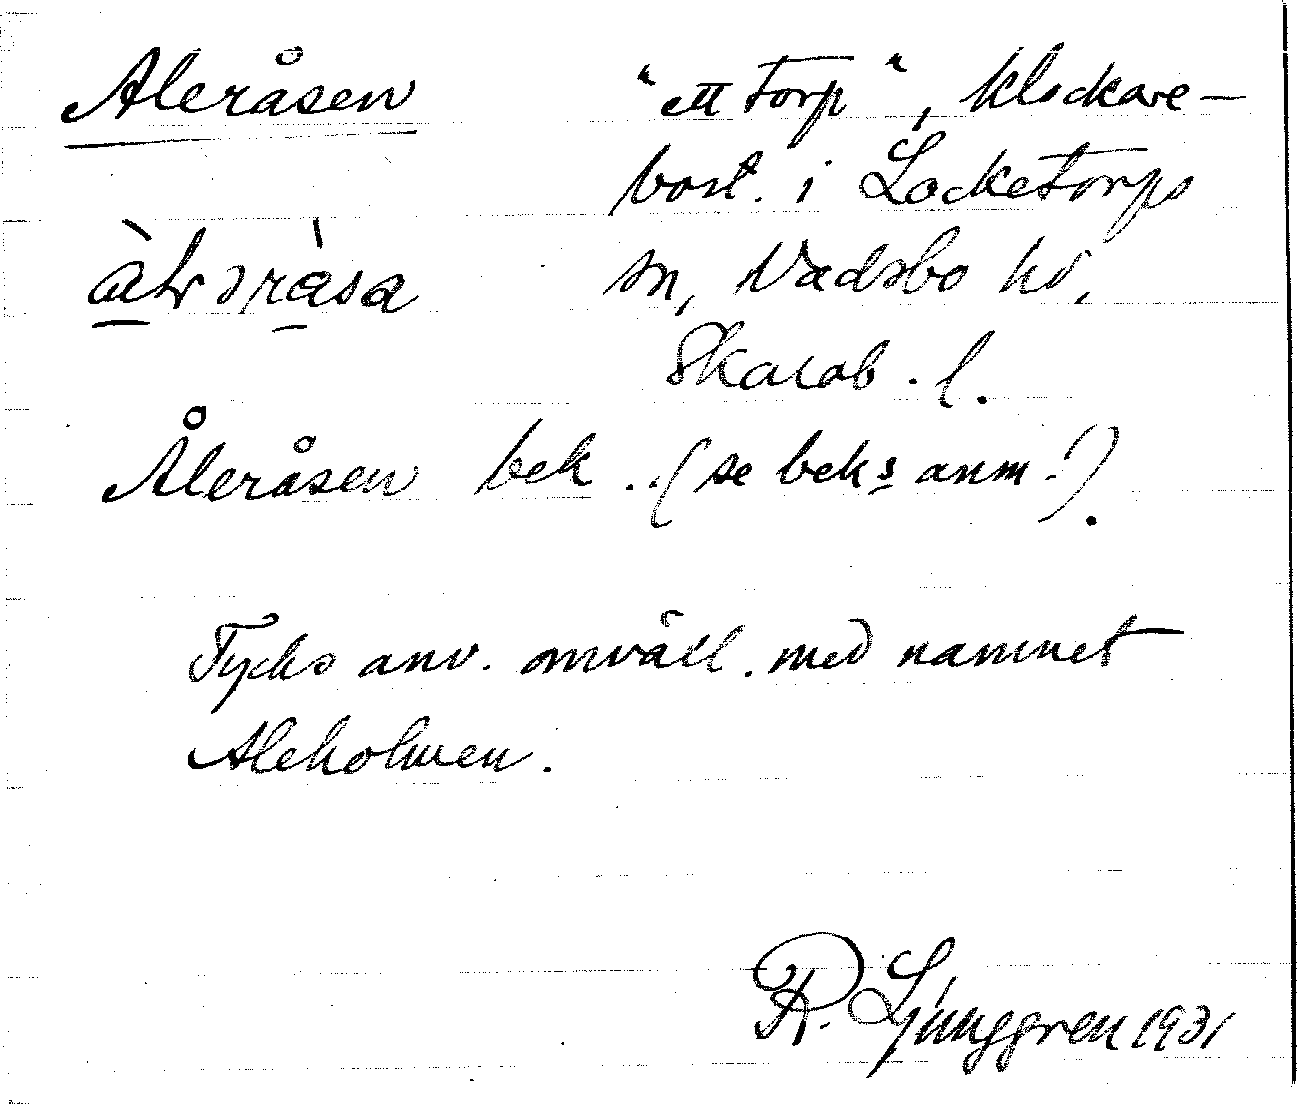 Aleråsen "ett torp", klockare-
bost. i Locketorps
sn, Vadsbo hd,
Skarab. l.
Åleråsen bek. (se beks anm.).
Tycks anv. omväxl. med namnet
Aleholmen.
R. Ljunggren 1931